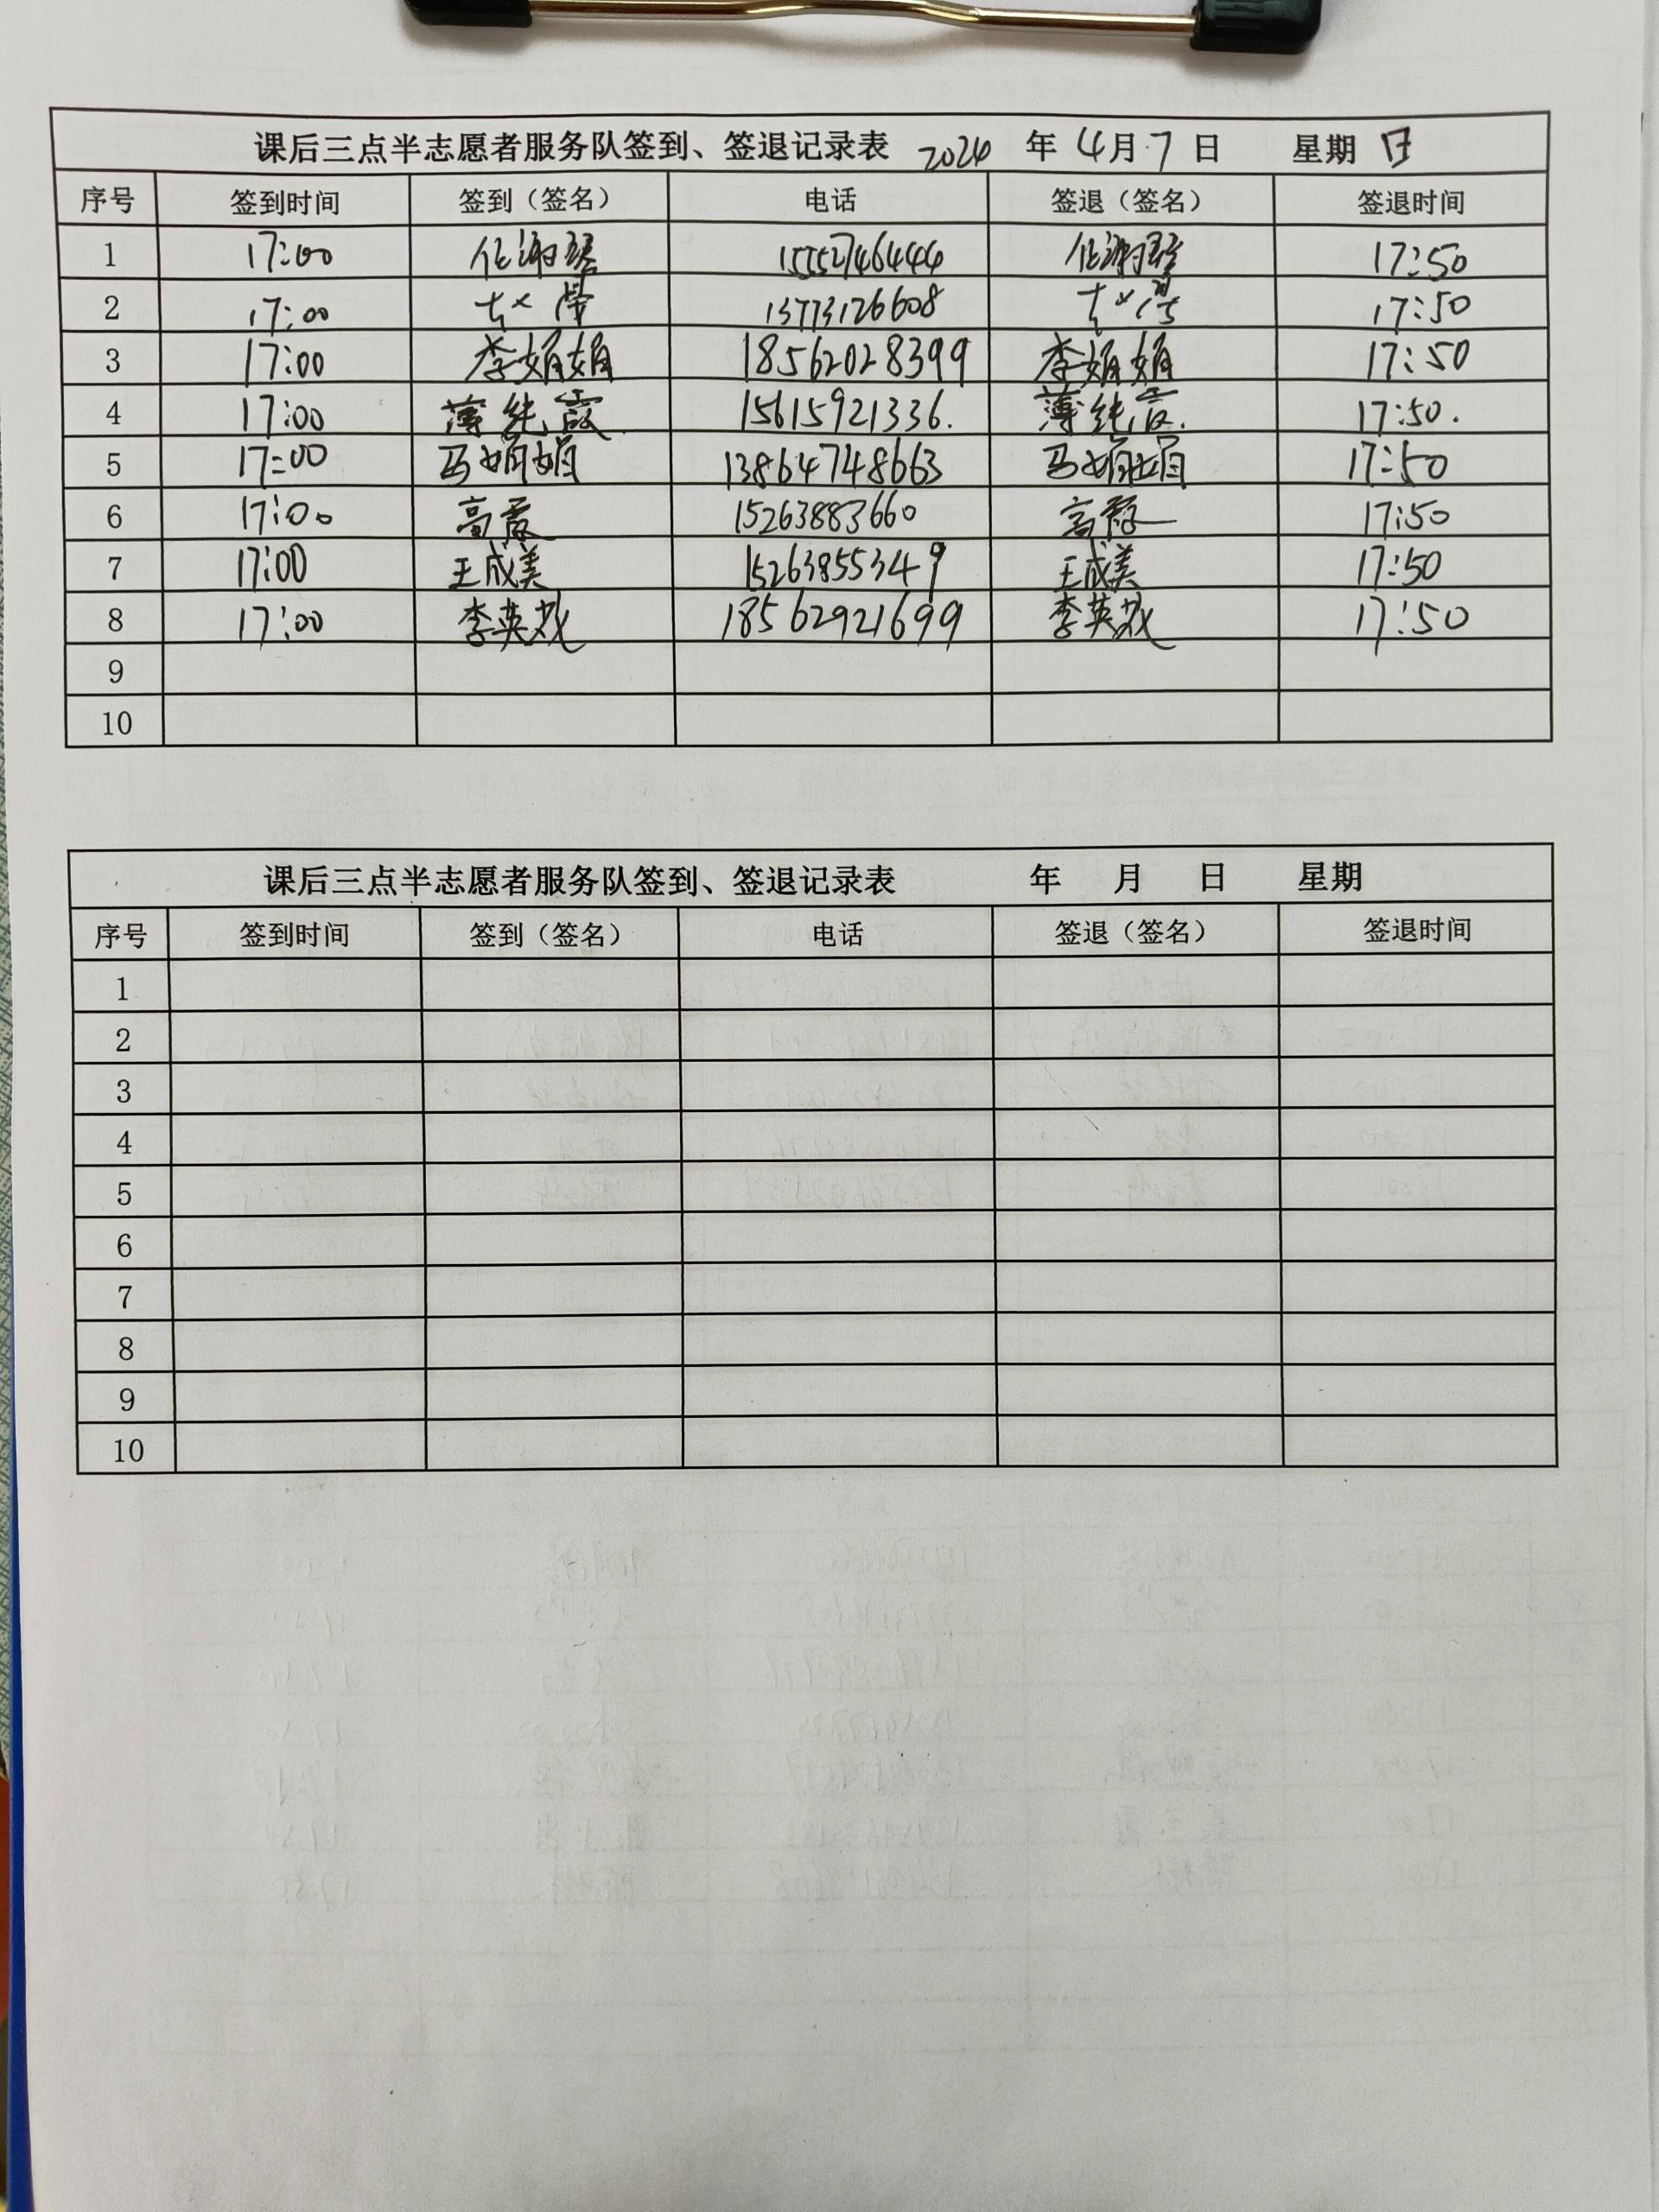 课后三点半志愿者服务队签到、签退记录表 2024 年 4月 7 日 星期 日
序号 签到时间 签到（签名） 电话 签退（签名） 签退时间
1 17:00 15552746444 17:50
2 17:00 13773126608 17:50
3 17:00 李娟娟 18562028399 李娟娟 17:50
4 17:00 薄纯霞 15615921336. 薄纯霞. 17:50.
5 17:00 马娟娟 13864748663 马娟娟 17:50
6 17:00 高霞 15263883660 高霞 17:50
7 17:00 王成美 15263855349 王成美 17:50
8 17:00 李英 18562921699 李英 17:50
9
10
课后三点半志愿者服务队签到、签退记录表 年 月 日 星期
序号 签到时间 签到（签名） 电话 签退（签名） 签退时间
1
2
3
4
5
6
7
8
9
10